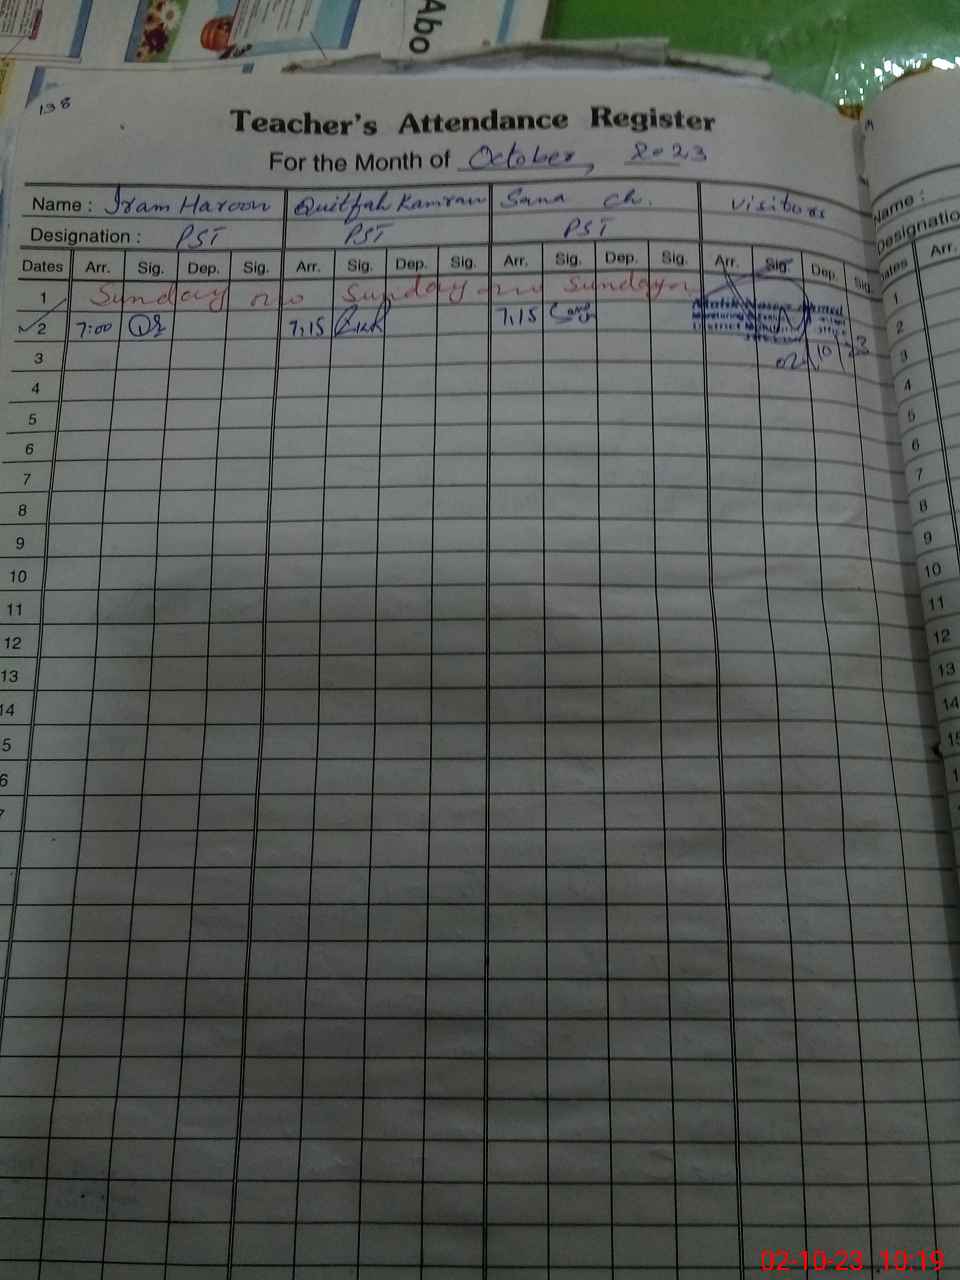 Abo
138
Teacher's Attendance Register
For the Month of October, 2023
Name : Iram Haroon Quitfah Kamran Sana Ch. Visitors
Designation : PST PST PST
Dates Arr. Sig. Dep. Sig. Arr. Sig. Dep. Sig. Arr. Sig. Dep. Sig. Arr. Sig. Dep. Sig.
1 Sunday Sunday Sunday
2 7:00 7,15 7,15
3 02/10/23
4
5
6
7
8
9
10
11
12
13
14
5
6
7
Name :
Designatio
Dates Arr.
1
2
3
4
5
6
7
8
9
10
11
12
13
14
15
02-10-23 10:19